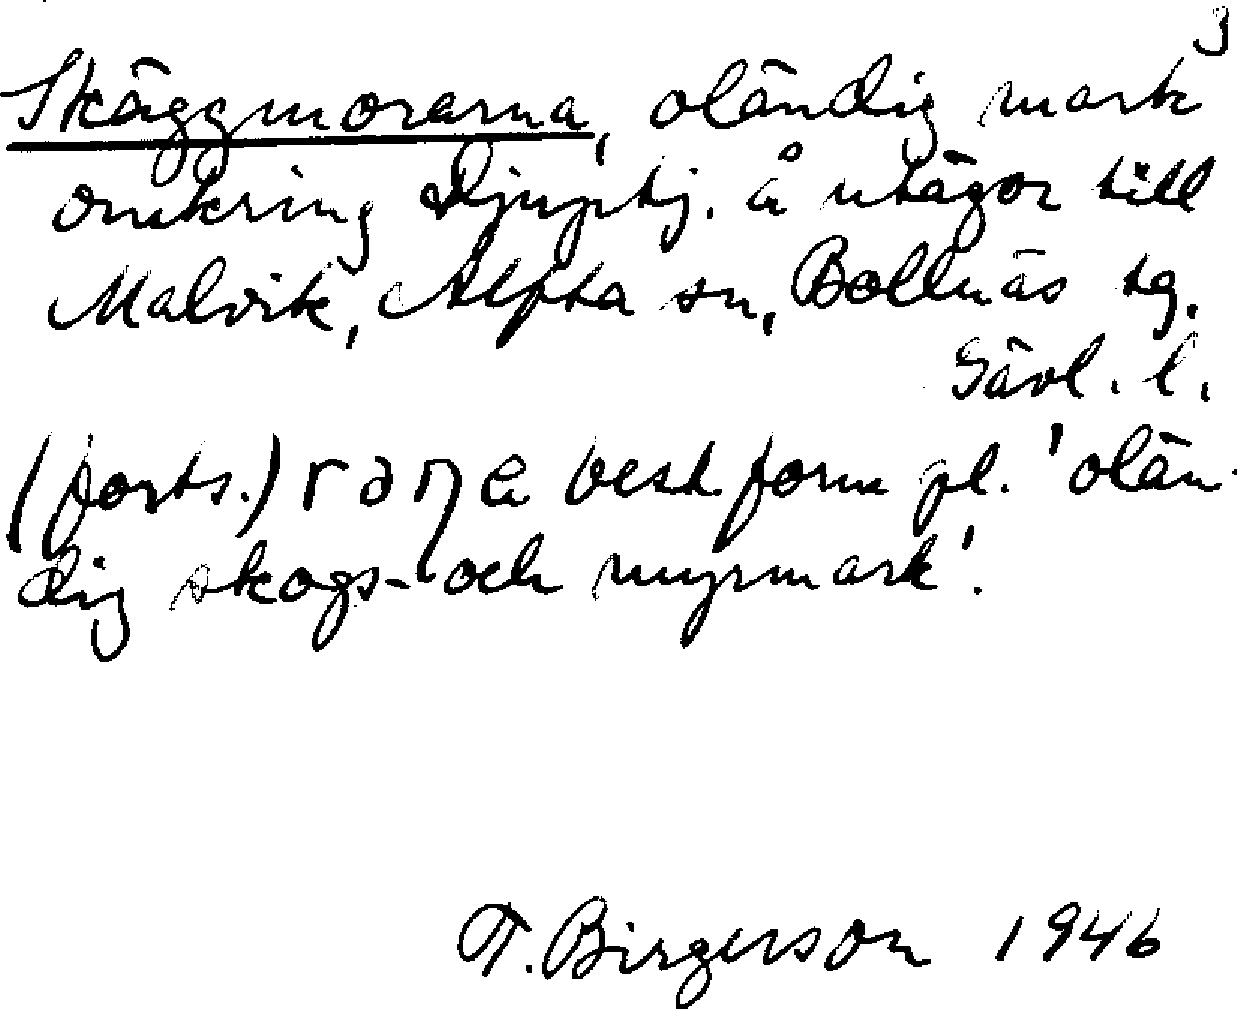 3
Skäggmorarna, oländig mark
omkring Djuptj. å utägor till
Malvik, Alfta sn, Bollnäs tg.
Gävl. l.
(forts.) best form pl. 'olän-
dig skogs- och myrmark'.
T. Birgerson 1946